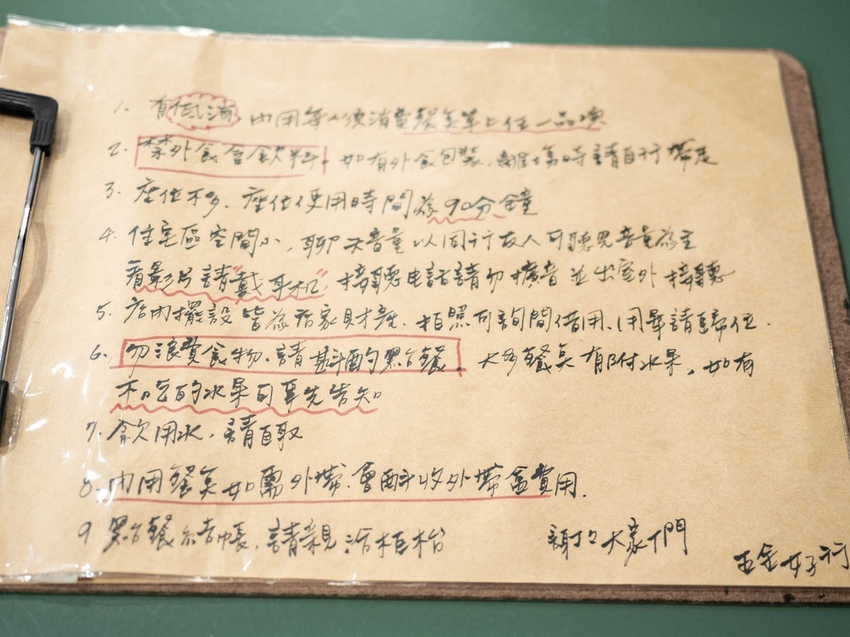 1. 有低消 內用每人須消費餐點單上任一品項
2. 禁外食含飲料，如有外食包裝，離場時請自行帶走
3. 座位不多，座位使用時間為90分鐘
4. 住宅區空間小，聊天音量以同行友人可聽見音量為主
看影片請"戴耳机"，接聽电話請勿擴音並出室外接聽
5. 店內擺設皆為店家財產，拍照可詢問借用，用畢請歸位.
6. 勿浪費食物，請斟酌點餐，大多餐點有附水果，如有
不吃的水果可事先告知
7. 飲用水，請自取
8. 內用餐點如需外帶，會酌收外帶盒費用.
9 點餐結帳，請親洽柜枱
謝謝大家們
五金好行